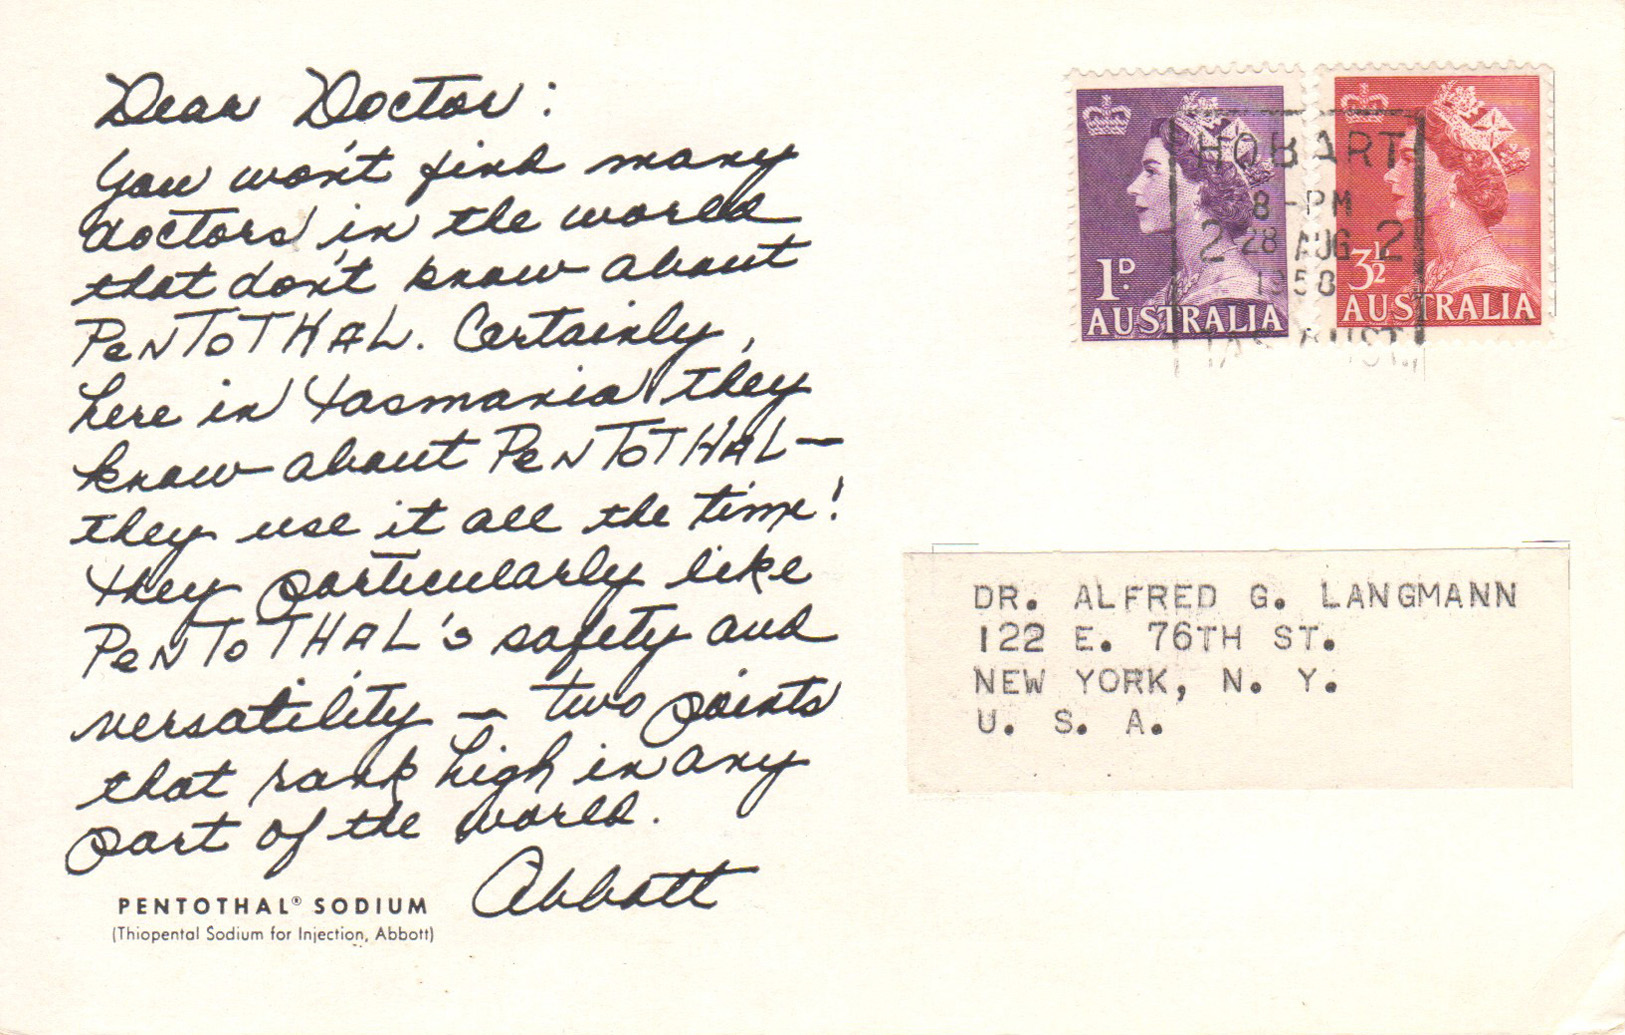 Dear Doctor:
You won't find many
doctors in the world
that don't know about
PeNTOTHAL. Certainly,
here in Tasmania they
know about PeNTOTHAL—
they use it all the time!
They particularly like
PeNTOTHAL's safety and
versatility — two points
that rank high in any
part of the world.
Abbott
PENTOTHAL® SODIUM
(Thiopental Sodium for Injection, Abbott)
1D.
AUSTRALIA
3½
AUSTRALIA
HOBART
8-PM
2 28 AUG 2
1958
TAS AUST.
DR. ALFRED G. LANGMANN
122 E. 76TH ST.
NEW YORK, N. Y.
U. S. A.